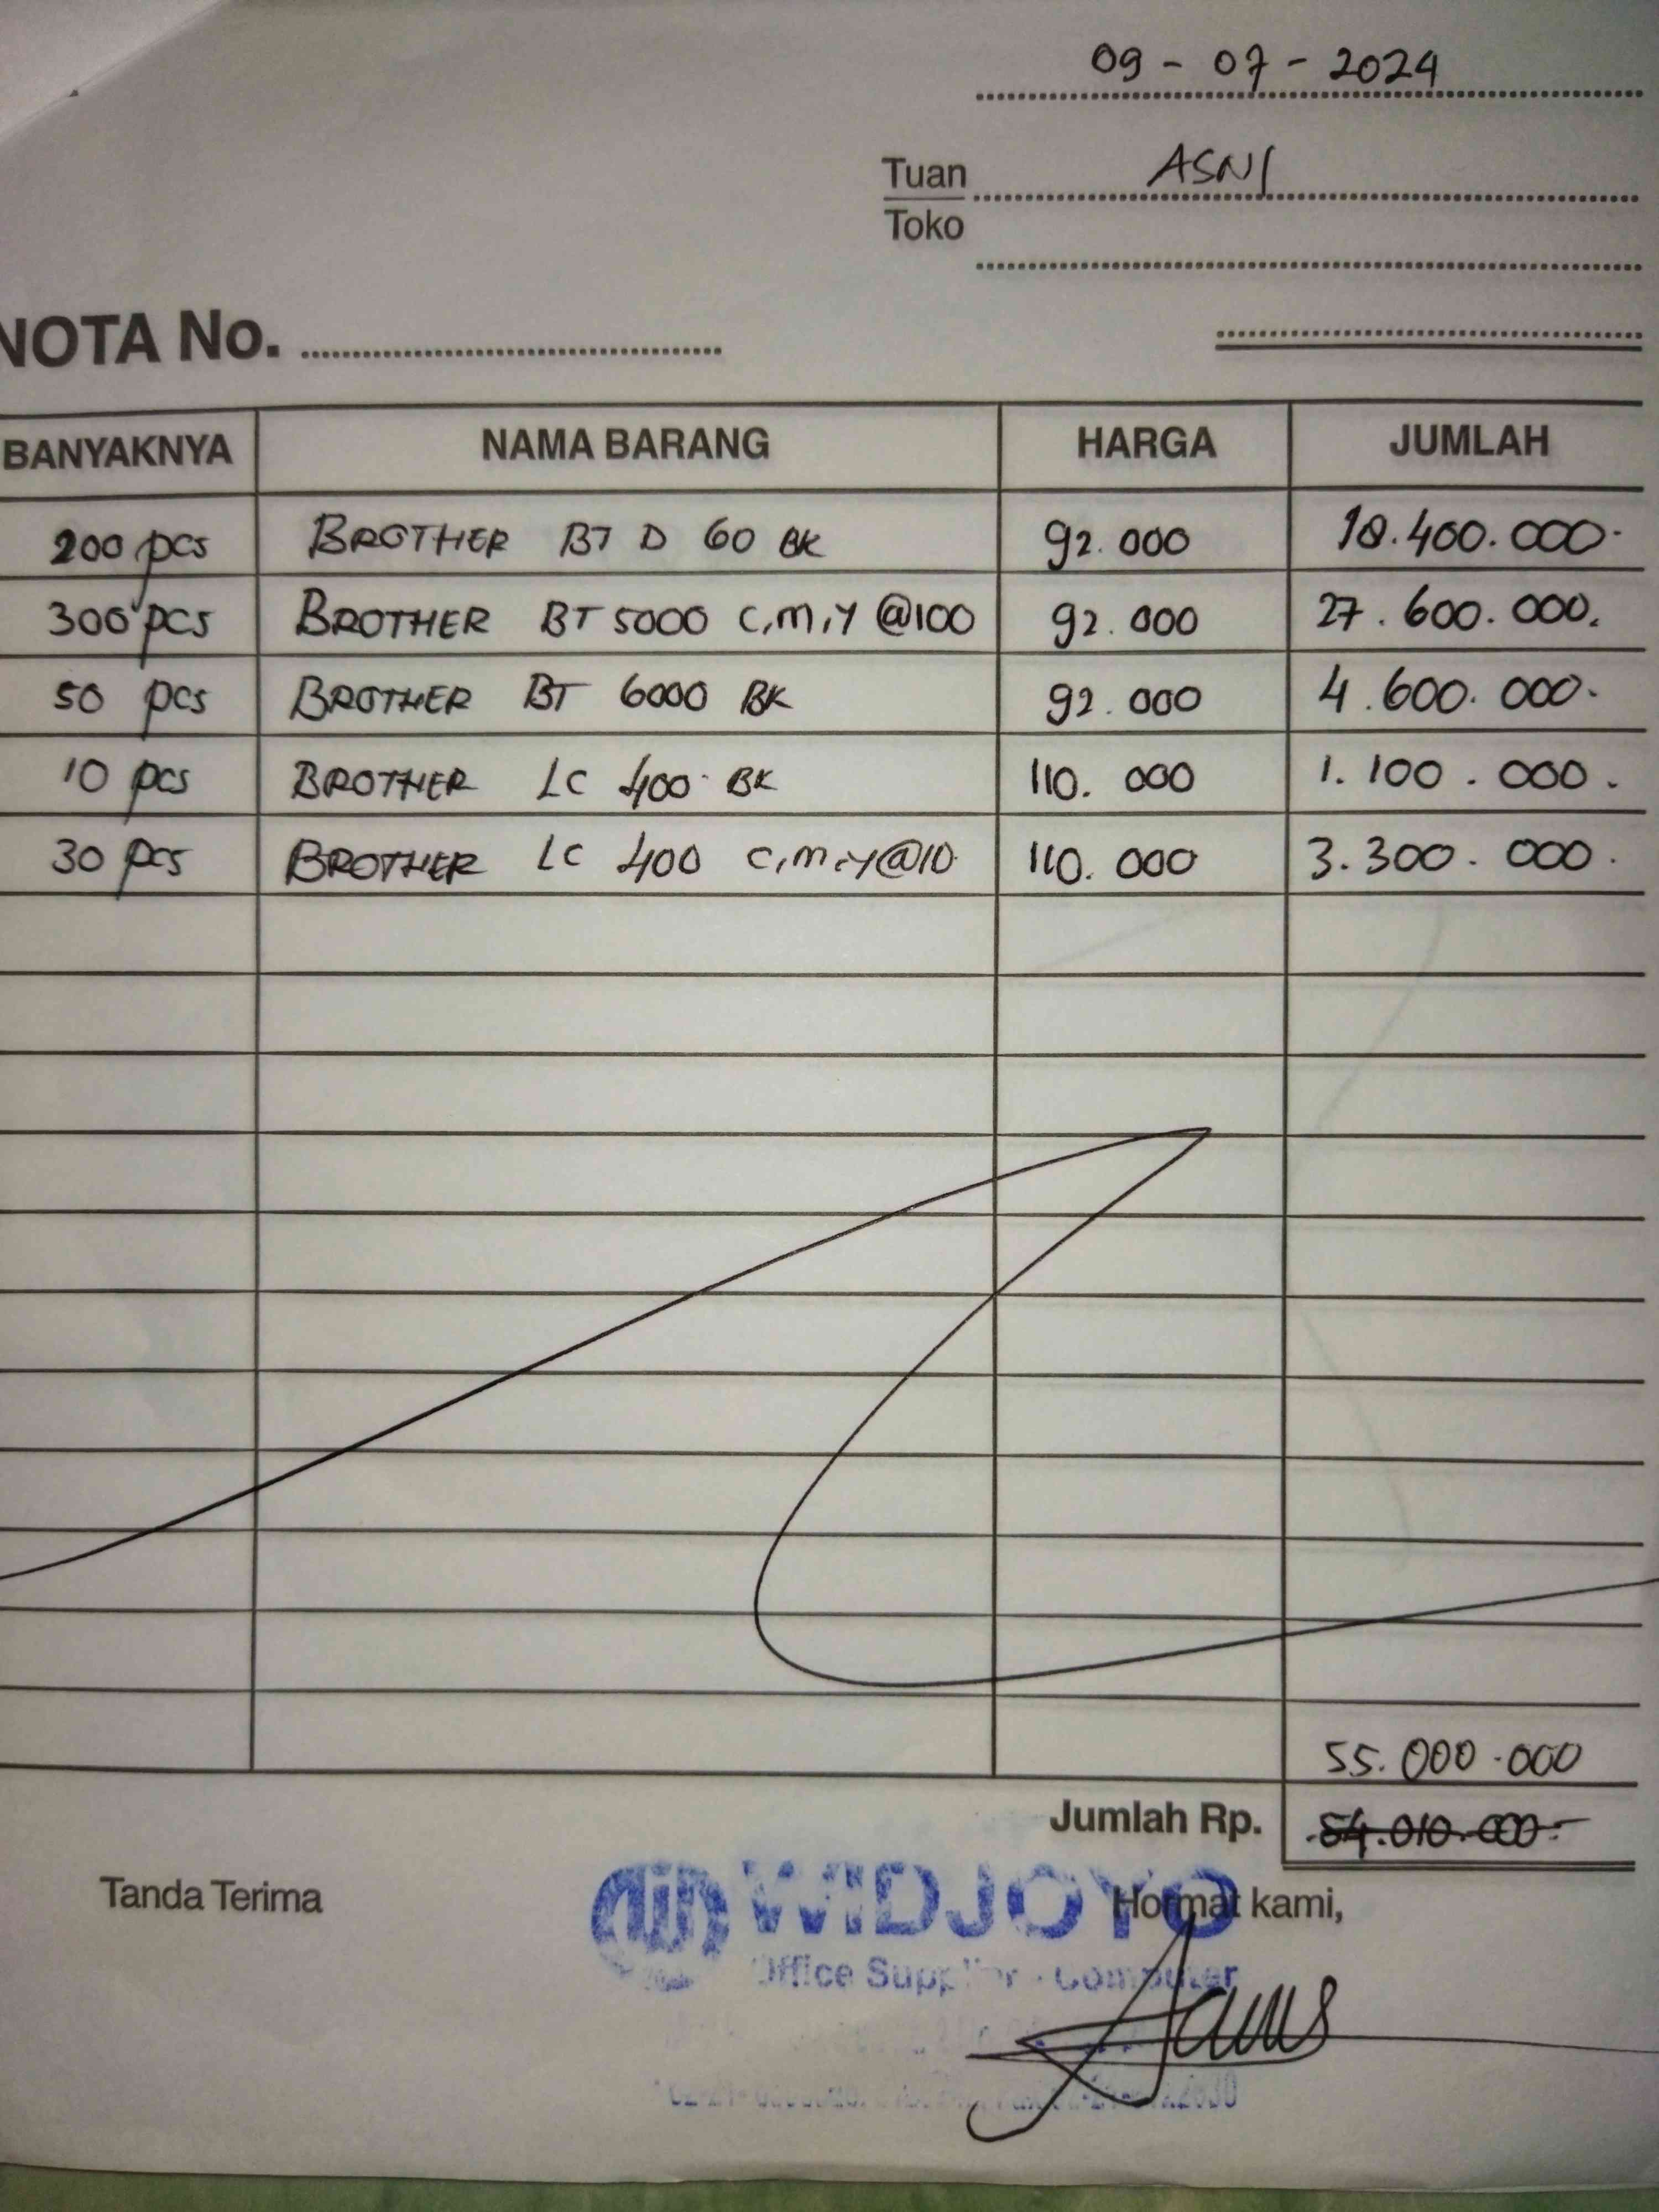 09 - 07 - 2024
Tuan ASNI
Toko
NOTA No.
BANYAKNYA NAMA BARANG HARGA JUMLAH
200 pcs BROTHER BT D 60 BK 92.000 18.400.000.
300 pcs BROTHER BT 5000 C,M,Y @100 92.000 27.600.000.
50 pcs BROTHER BT 6000 BK 92.000 4.600.000.
10 pcs BROTHER LC 400 BK 110.000 1.100.000.
30 pcs BROTHER LC 400 C,M,Y @10 110.000 3.300.000.
55.000.000
Jumlah Rp. 54.010.000.-
Tanda Terima Hormat kami,
WIDJOYO
Office Supplier - Computer